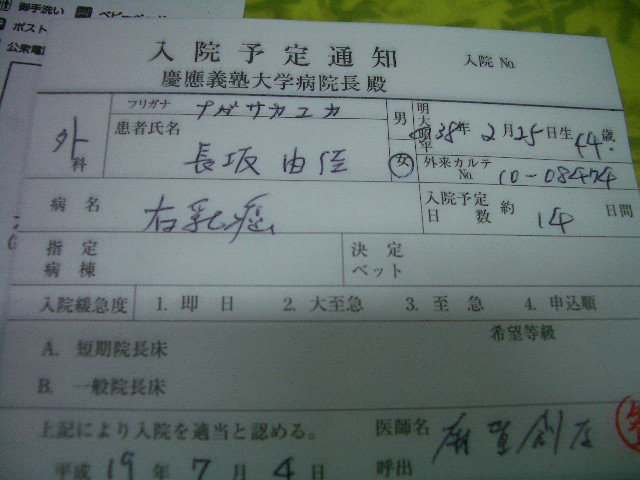 御手洗い
ポスト
公衆電
入院予定通知
入院 No.
慶應義塾大学病院長殿
外科
フリガナ ナガサカ ユカ
患者氏名
男 女
明大昭平 38年 2月25日生 44歳
外来カルテ No. 10-08474
病名 右乳癌
入院予定日数 約 14 日間
指定病棟
決定ベット
入院緩急度 1. 即日 2. 大至急 3. 至急 4. 申込順
希望等級
A. 短期院長床
B. 一般院長床
上記により入院を適当と認める。
医師名
平成 19 年 7 月 4 日
呼出